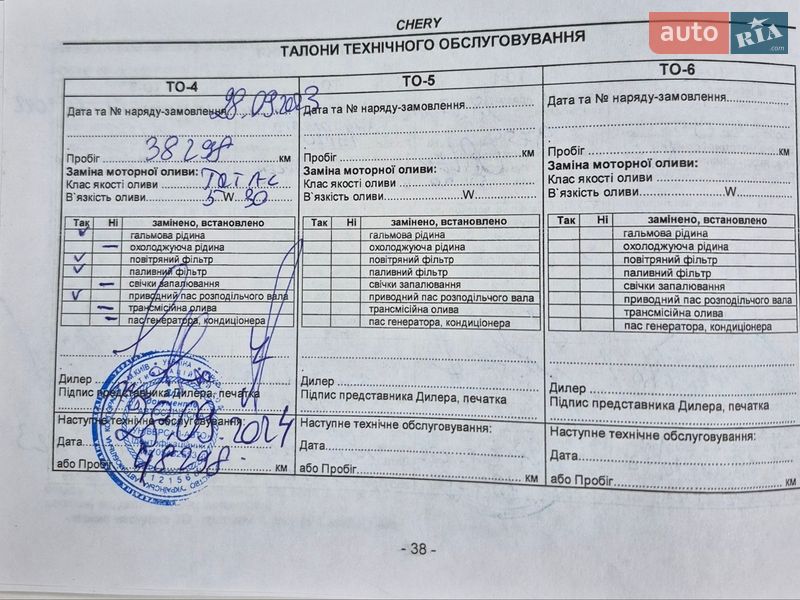 CHERY
auto RIA .com
ТАЛОНИ ТЕХНІЧНОГО ОБСЛУГОВУВАННЯ
ТО-4
Дата та № наряду-замовлення 28.09.2023
Пробіг 38298 км
Заміна моторної оливи:
Клас якості оливи
В`язкість оливи 5 W 30
Так Ні замінено, встановлено
гальмова рідина
охолоджуюча рідина
повітряний фільтр
паливний фільтр
свічки запалювання
приводний пас розподільчого вала
трансмісійна олива
пас генератора, кондиціонера
Дилер
Підпис представника Дилера, печатка
Наступне технічне обслуговування
Дата 28.09.2024
або Пробіг 48298 км
ТО-5
Дата та № наряду-замовлення
Пробіг км
Заміна моторної оливи:
Клас якості оливи
В`язкість оливи W
Так Ні замінено, встановлено
гальмова рідина
охолоджуюча рідина
повітряний фільтр
паливний фільтр
свічки запалювання
приводний пас розподільчого вала
трансмісійна олива
пас генератора, кондиціонера
Дилер
Підпис представника Дилера, печатка
Наступне технічне обслуговування:
Дата
або Пробіг км
ТО-6
Дата та № наряду-замовлення
Пробіг км
Заміна моторної оливи:
Клас якості оливи
В`язкість оливи W
Так Ні замінено, встановлено
гальмова рідина
охолоджуюча рідина
повітряний фільтр
паливний фільтр
свічки запалювання
приводний пас розподільчого вала
трансмісійна олива
пас генератора, кондиціонера
Дилер
Підпис представника Дилера, печатка
Наступне технічне обслуговування:
Дата
або Пробіг км
- 38 -